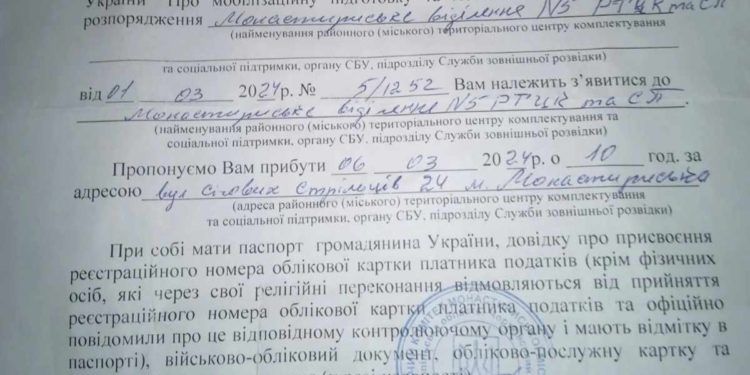 України "Про мобілізаційну підготовку та
розпорядження Монастириське відділення №5 РТЦК та СП
(найменування районного (міського) територіального центру комплектування
та соціальної підтримки, органу СБУ, підрозділу Служби зовнішньої розвідки)
від 01 03 2024р. № 5/1252 Вам належить з’явитися до
Монастириське відділення №5 РТЦК та СП.
(найменування районного (міського) територіального центру комплектування та
соціальної підтримки, органу СБУ, підрозділу Служби зовнішньої розвідки)
Пропонуємо Вам прибути 06 03 2024р. о 10 год. за
адресою вул Січових Стрільців 24 м. Монастириська
(адреса районного (міського) територіального центру комплектування
та соціальної підтримки, органу СБУ, підрозділу Служби зовнішньої розвідки)
При собі мати паспорт громадянина України, довідку про присвоєння
реєстраційного номера облікової картки платника податків (крім фізичних
осіб, які через свої релігійні переконання відмовляються від прийняття
реєстраційного номера облікової картки платника податків та офіційно
повідомили про це відповідному контролюючому органу і мають відмітку в
паспорті), військово-обліковий документ, обліково-послужну картку та